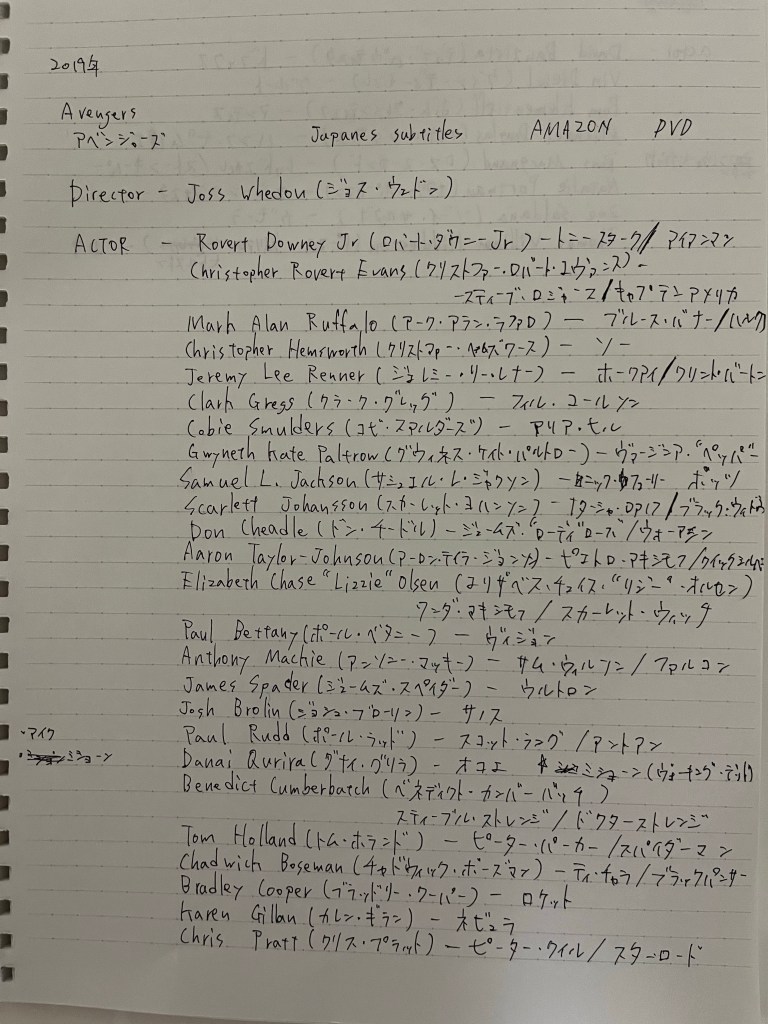 2019年
Avengers
アベンジャーズ Japanes subtitles AMAZON DVD
Director - Joss Whedon (ジョス・ウェドン)
ACTOR - Rovert Downey Jr (ロバート・ダウニーJr) - トニースターク/アイアンマン
Christopher Rovert Evans (クリストファー・ロバート・エヴァンス) -
- スティーブ・ロジャース/キャプテンアメリカ
Mark Alan Ruffalo (マーク・アラン・ラファロ) - ブルース・バナー/ハルク
Christopher Hemsworth (クリストファー・ヘムズワース) - ソー
Jeremy Lee Renner (ジェレミー・リー・レナー) - ホークアイ/クリント・バートン
Clark Gregg (クラーク・グレッグ) - フィル・コールソン
Cobie Smulders (コビ・スマルダーズ) - マリア・ヒル
Gwyneth Kate Paltrow (グウィネス・ケイト・パルトロー) - ヴァージニア・"ペッパー"
Samuel L. Jackson (サミュエル・L・ジャクソン) - ニック・フューリー ポッツ
Scarlett Johansson (スカーレット・ヨハンソン) - ナターシャ・ロマノフ/ブラック・ウィドウ
Don Cheadle (ドン・チードル) - ジェームズ・"ローディ"ローズ/ウォーマシン
Aaron Taylor-Johnson (アーロン・テイラ・ジョンソン) - ピエトロ・マキシモフ/クイックシルバー
Elizabeth Chase "Lizzie" Olsen (エリザベス・チェイス・"リジー"・オルセン)
ワンダ・マキシモフ/スカーレット・ウィッチ
Paul Bettany (ポール・ベタニー) - ヴィジョン
Anthony Machie (アンソニー・マッキー) - サム・ウィルソン/ファルコン
James Spader (ジェームズ・スペイダー) - ウルトロン
Josh Brolin (ジョシュ・ブローリン) - サノス
・マイク Paul Rudd (ポール・ラッド) - スコット・ラング/アントマン
・ミショーン Danai Qurira (ダナイ・グリラ) - オコエ ミショーン (ウォーキング・デッド)
Benedict Cumberbatch (ベネディクト・カンバーバッチ)
スティーブル・ストレンジ/ドクターストレンジ
Tom Holland (トム・ホランド) - ピーター・パーカー/スパイダーマン
Chadwick Boseman (チャドウィック・ボーズマン) - ティ・チャラ/ブラックパンサー
Bradley Cooper (ブラッドリー・クーパー) - ロケット
Karen Gillan (カレン・ギラン) - ネビュラ
Chris Pratt (クリス・プラット) - ピーター・クイル/スターロード